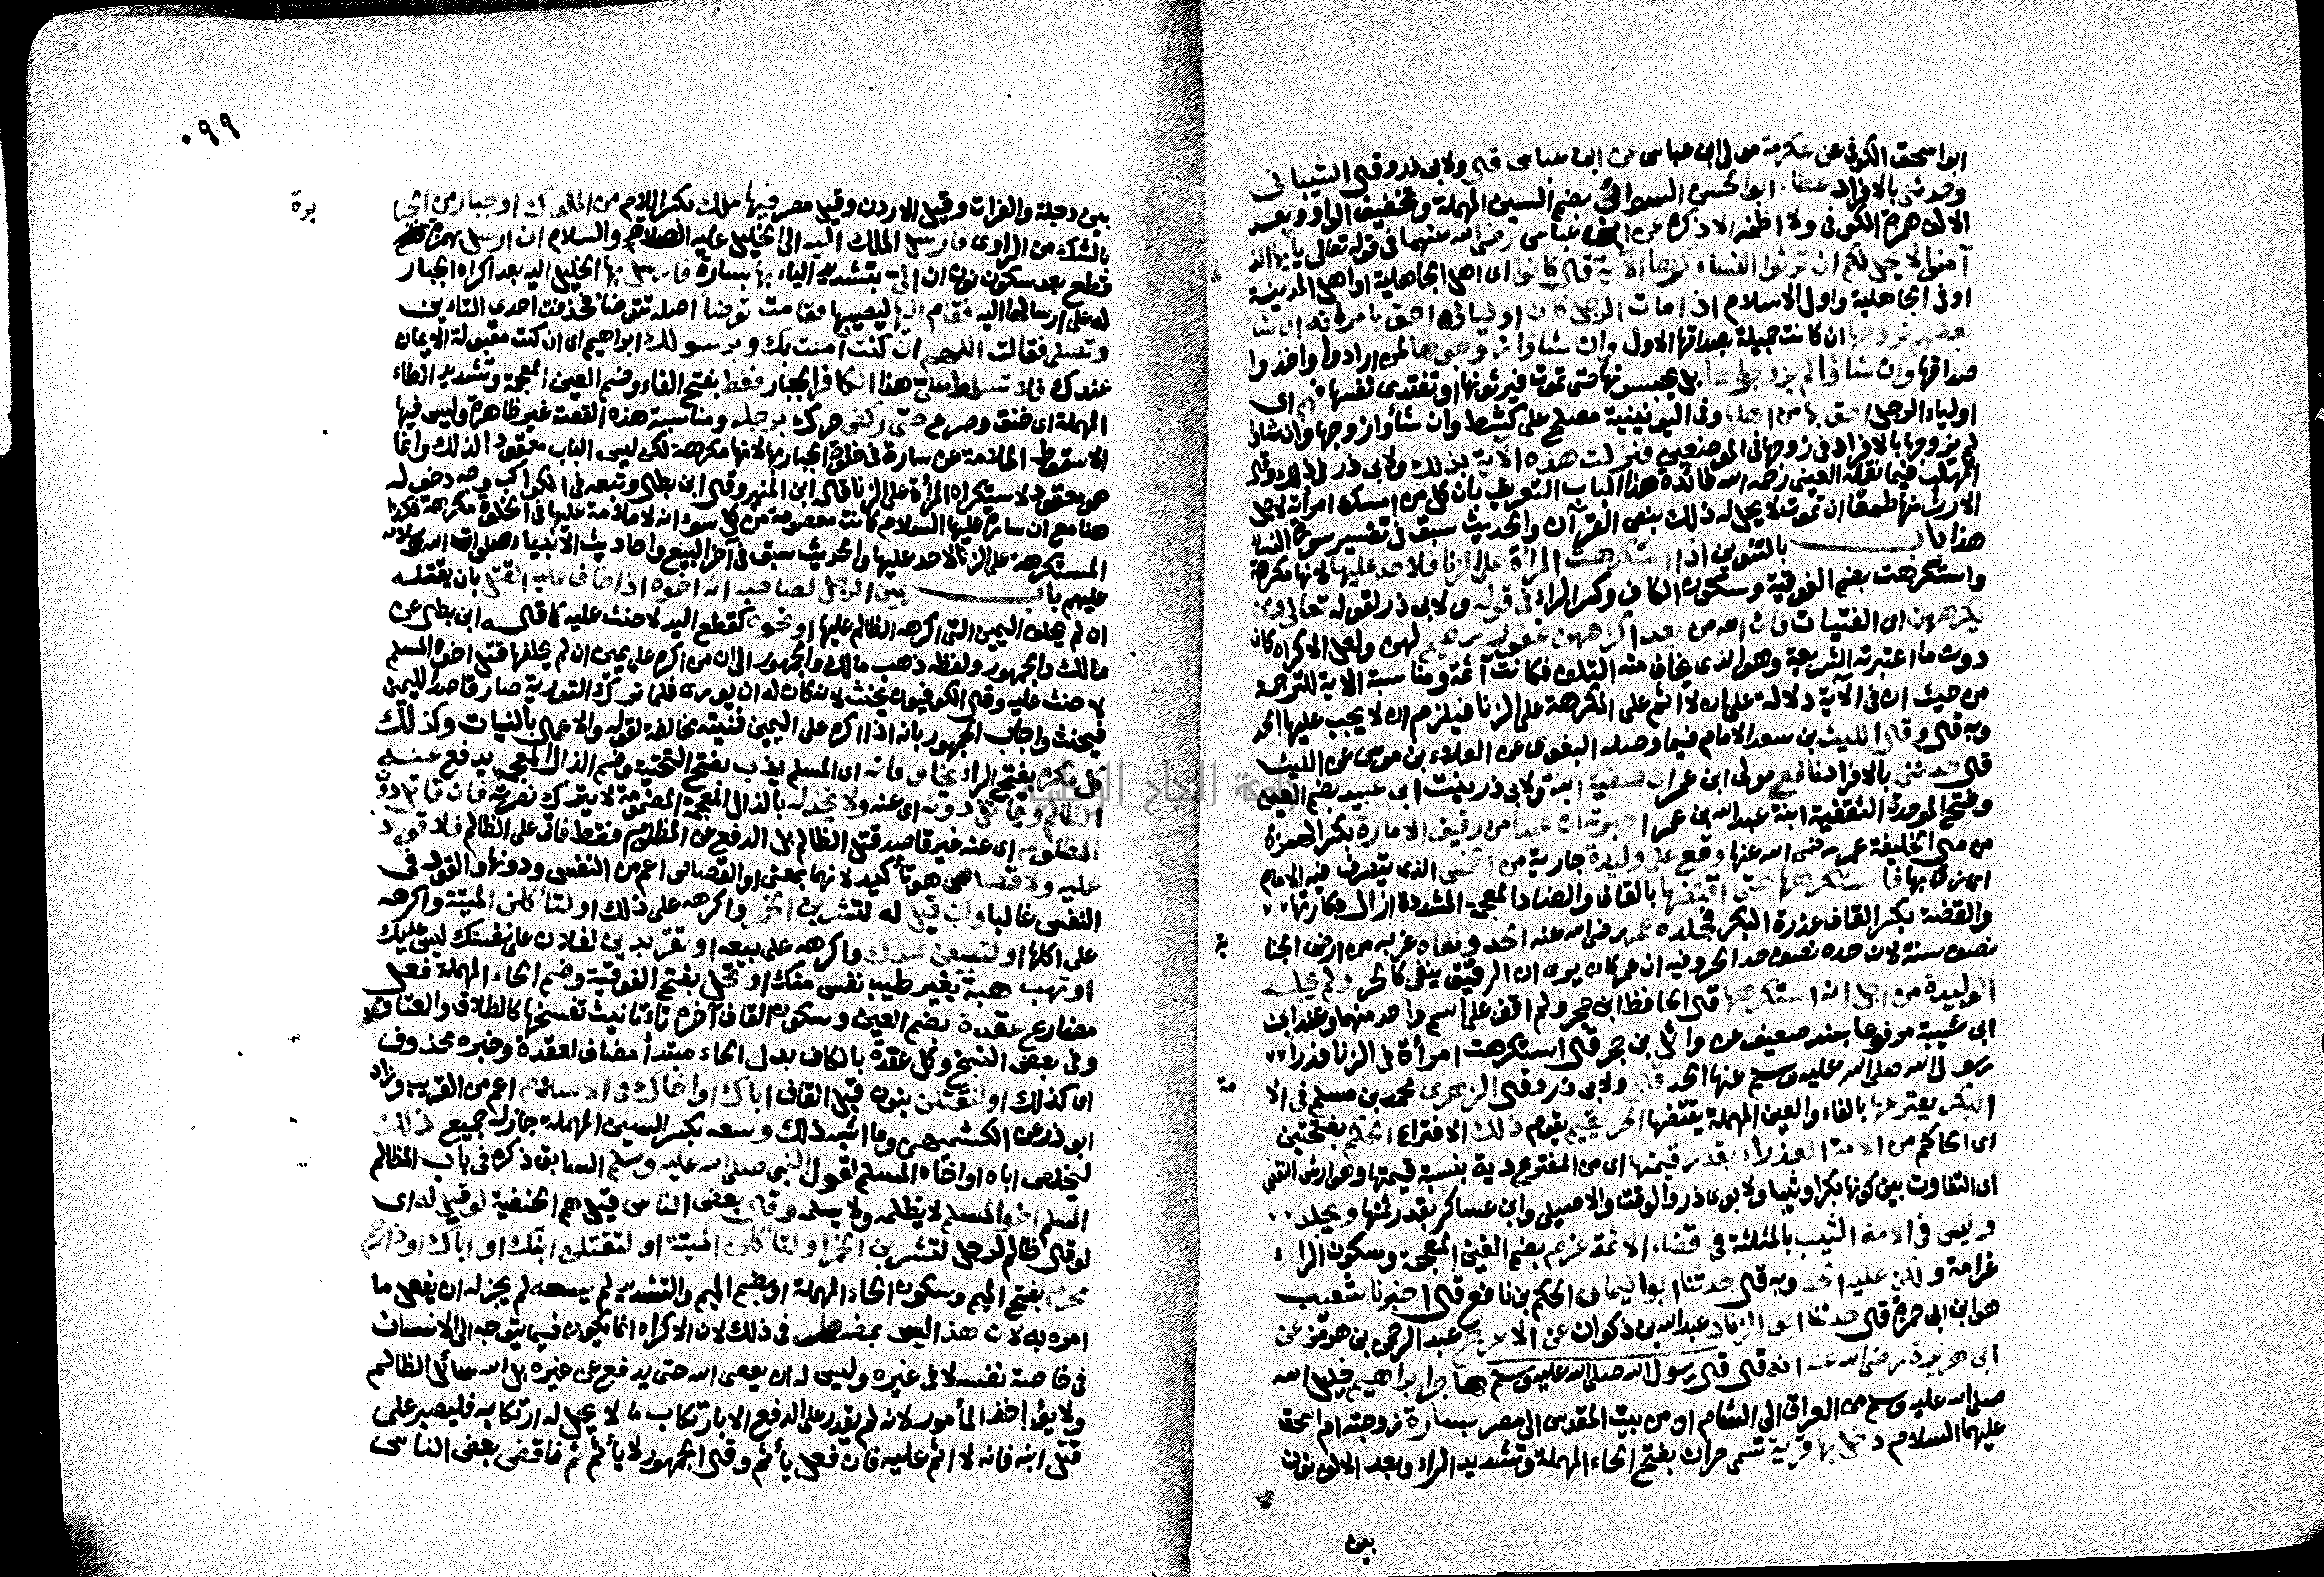 ابو اسحق الكوفي عن عكرمة مولى ابن عباس عن ابن عباس قال ولابى ذر وقال الشيبانى
وحدثنى بالافراد عطاء ابو الحسن السوائى بضم السين المهملة وتخفيف الواو وبعد
الالف همزة الكوفى ولا اظنه الا ذكره عن ابن عباس رضى الله عنهما فى قوله تعالى يا ايها الذ
آمنوا لا يحل لكم ان ترثوا النساء كرها الآية قال كانوا اى اهل الجاهلية او اهل المدينة
او فى الجاهلية واول الاسلام اذا مات الرجل كان اولياؤه احق بامرأته ان شا
بعضهم تزوجها ان كانت جميلة بصداقها الاول وان شاؤا زوجوها لمن ارادوا واخذوا
صداقها وان شاؤا لم يزوجوها بل يحبسونها حتى تموت فيرثونها او تفتدى نفسها فهم اى
اولياء الرجل احق بها من اهلها وفى اليونينية مصلح على كشط وان شاؤا زوجها وان شاؤا
لم يزوجها بالافراد فى زوجها فى الموضعين فنزلت هذه الآية بذلك ولابى ذر فى ذلك وقال
المهلب فيما نقله العينى رحمه الله فائدة هذا الباب التعريف بان كل من امسك امرأته لاجل
الارث منها طمعا ان تموت لا يحل له ذلك بنص القرآن والحديث سبق فى تفسير سورة النساء
هذا باب بالتنوين اذا استكرهت المرأة على الزنا فلا حد عليها لانها مكرهة
واستكرهت بضم الفوقية وسكون الكاف وكسر الراء فى قوله ولابى ذر لقوله تعالى ومن
يكرههن اى الفتيات فان الله من بعد اكراههن غفور رحيم لهن ولعل الاكراه كان
دون ما اعتبرته الشريعة وهو الذى يخاف منه التلف فكانت آثمة ومناسبة الاية للترجمة
من حيث ان فى الآية دلالة على ان لا اثم على المكرهة على الزنا فيلزم ان لا يجب عليها الحد
وبه قال وقال الليث بن سعد الامام فيما وصله البغوى عن العلاء بن موسى عن الليث
قال حدثنى بالافراد نافع مولى ابن عمر ان صفية ابنة ولابى ذر بنت ابى عبيد بضم العين
وفتح الموحدة الثقفية ابنة عبد الله بن عمر اخبرته ان عبدا من رقيق الامارة بكسر الهمزة
من مال الخليفة عمر رضى الله عنها وقع على وليدة جارية من الخمس الذى يتصرف فيه الامام
اى زنى بها فاستكرهها حتى اقتضها بالقاف والضاد المعجمة المشددة ازال بكارتها
والقضة بكسر القاف عذرة البكر فجلده عمر رضى الله عنه الحد ونفاه غربه من ارض الجنا
ية
نصف سنة لان حده نصف حد الحر وفيه ان عمر كان يرى ان الرقيق ينفى كالحر ولم يجلد
الوليدة من اجل انه استكرهها قال الحافظ ابن حجر ولم اقف على اسم واحد منهما وعند ابن
ابى شيبة مرفوعا بسند ضعيف عن وائل بن حجر قال استكرهت امرأة فى الزنا فدرأ
رسول الله صلى الله عليه وسلم عنها الحد قال ولابى ذر وقال الزهرى محمد بن مسلم فى الا
مة
البكر يفترعها بالفاء والعين المهملة يقتضها الحر يقيم يقوم ذلك الافتراع الحكم بفتحتين
اى الحاكم من الامة العذراء بقدر قيمتها اى من المفترع دية بنسبة قيمتها وهو ارش النقص
اى التفاوت بين كونها بكرا وثيبا ولابوى ذر والوقت والاصيلى وابن عساكر بقدر ثمنها ويجلد
وليس فى الامة الثيب بالمثلثة فى قضاء الائمة غرم بضم الغين المعجمة وسكون الراء
غرامة ولكن عليه الحد وبه قال حدثنا ابو اليمان الحكم بن نافع قال اخبرنا شعيب
هو ابن ابى حمزة قال حدثنا ابو الزناد عبد الله بن ذكوان عن الاعرج عبد الرحمن بن هرمز عن
ابى هريرة رضى الله عنه انه قال قال رسول الله صلى الله عليه وسلم هاجر ابراهيم خليل الله
صلى الله عليه وسلم من العراق الى الشام او من بيت المقدس الى مصر بسارة زوجته ام اسحق
عليهما السلام دخل بها قرية تسمى حران بفتح الحاء المهملة وتشديد الراء وبعد الالف نون
بين
٠٩٩
بين دجلة والفرات وقيل الاردن وقيل مصر فيها ملك بكسر اللام من الملوك او جبار من الجبا
برة
بالشك من الراوى فارسل الملك اليه الى الخليل عليه الصلاة والسلام ان ارسل بهمزة
قطع بعد سكون نون ان الى بتشديد الياء بها بسارة فارسل بها الخليل اليه بعد اكراه الجبار
له على ارسالها اليه فقام اليها ليصيبها فقامت توضأ اصله تتوضأ فحذفت احدى التاءين
وتصلى فقالت اللهم ان كنت آمنت بك وبرسولك ابراهيم اى ان كنت مقبولة الايمان
عندك فلا تسلط على هذا الكافر الجبار فغط بفتح الفاء وضم الغين المعجمة وتشديد الطاء
المهملة اى خنق وصرع حتى ركض حرك برجله ومناسبة هذه القصة غير ظاهرة وليس فيها
الا سقوط الملامة عن سارة فى خلوة الجبار بها لانها مكرهة لكن ليس الباب معقود لذلك وانما
هو معقود لاستكراه المرأة على الزنا قاله ابن المنير وقال ابن بطال وتبعه فى الكواكب وجه دخوله
هنا مع ان سارة عليها السلام كانت معصومة من كل سوء انه لا ملامة عليها فى الخلوة مكرهة فكذا
المستكرهة على الزنا لا حد عليها والحديث سبق فى آخر البيع واحاديث الانبياء صلوات الله وسلامه
عليهم باب يمين الرجل لصاحبه انه اخوه اذا خاف عليه القتل بان يقتله
ان لم يحلف اليمين التى اكرهه الظالم عليها او نحوه كقطع اليد لا حنث عليه كما قاله ابن بطال عن
مالك والجمهور ولفظه ذهب مالك والجمهور الى ان من اكره على يمين ان لم يحلفها قتل اخوه المسلم
لا حنث عليه وقال الكوفيون يحنث لانه كان له ان يورى فلما ترك التورية صار قاصدا لليمين
فيحنث واجاب الجمهور بانه اذا اكره على اليمين فنيته مخالفة لقوله والاعمال بالنيات وكذلك
كل مكره بفتح الراء يخاف فانه اى المسلم يذب بفتح التحتية وضم الذال المعجمة يدفع عنه
الظالم ويقاتل دونه اى عنه ولا يخذله بالذال المعجمة المضمومة لا يترك نصرته فان قاتل دون
المظلوم اى عنه غير قاصد قتل الظالم بل الدفع عن المظلوم فقط فاتى على الظالم فلا قود
عليه ولا قصاص هو تأكيد لانهما بمعنى او القصاص اعم من النفس ودونها والقود فى
النفس غالبا وان قيل له لتشربن الخمر واكرهه على ذلك او لتأكلن الميتة واكرهه
على اكلها او لتبيعن عبدك واكرهه على بيعه او تقر بدين لفلان على نفسك ليس عليك
او تهب هبة بغير طيب نفس منك او تحل بفتح الفوقية وضم الحاء المهملة فعل
مضارع عقدة بضم العين وسكون القاف آخره تاء تانيث تفسخها كالطلاق والعتاق
وفى بعض النسخ وكل عقدة بالكاف بدل الحاء مبتدأ مضاف لعقدة وخبره محذوف
اى كذلك او لنقتلن بنون قبل القاف اباك او اخاك فى الاسلام اعم من القريب وزاد
ابو ذر عن الكشميهنى وما اشبه ذلك وسعه بكسر السين المهملة جاز له جميع ذلك
ليخلص اباه او اخاه المسلم لقول النبى صلى الله عليه وسلم السابق ذكره فى باب المظالم
المسلم اخو المسلم لا يظلمه ولا يسلمه وقال بعض الناس قيل هم الحنفية لو قيل له اى
لو قال ظالم لرجل لتشربن الخمر او لتأكلن الميتة او لنقتلن ابنك او اباك او ذا رحم
محرم بفتح الميم وسكون الحاء المهملة او بضم الميم والتشديد لم يسعه لم يجز له ان يفعل ما
امره به لان هذا ليس بمضطر فى ذلك لان الاكراه انما يكون فيما يتوجه الى الانسان
فى خاصة نفسه لا فى غيره وليس له ان يعصى الله حتى يدفع عن غيره بل الله سائل الظالم
ولا يؤاخذ المأمور لانه لم يقدر على الدفع الا بارتكاب ما لا يحل له ارتكابه فليصبر على
قتل ابنه فانه لا اثم عليه فان فعل يأثم وقال الجمهور لا يأثم ثم ناقض بعض الناس